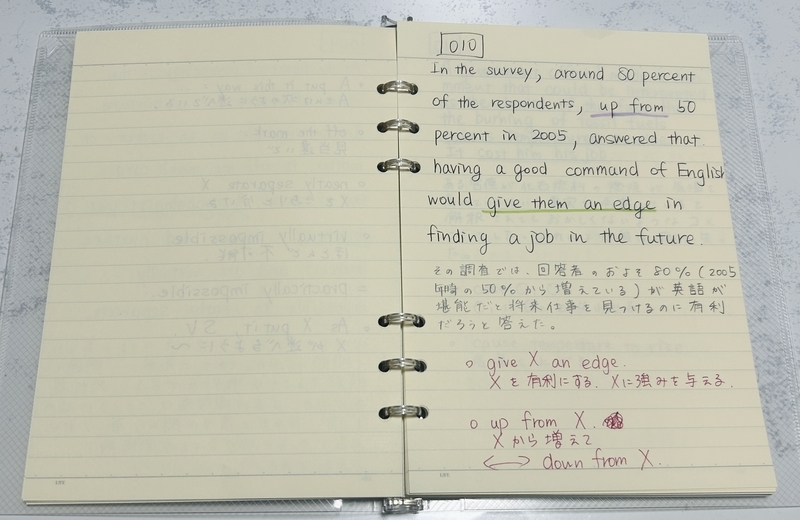 010
In the survey, around 80 percent
of the respondents, up from 50
percent in 2005, answered that
having a good command of English
would give them an edge in
finding a job in the future.
その調査では、回答者のおよそ80%(2005
年時の50%から増えている)が英語が
堪能だと将来仕事を見つけるのに有利
だろうと答えた。
○ give X an edge.
Xを有利にする、Xに強みを与える。
○ up from X.
Xから増えて
↔ down from X.